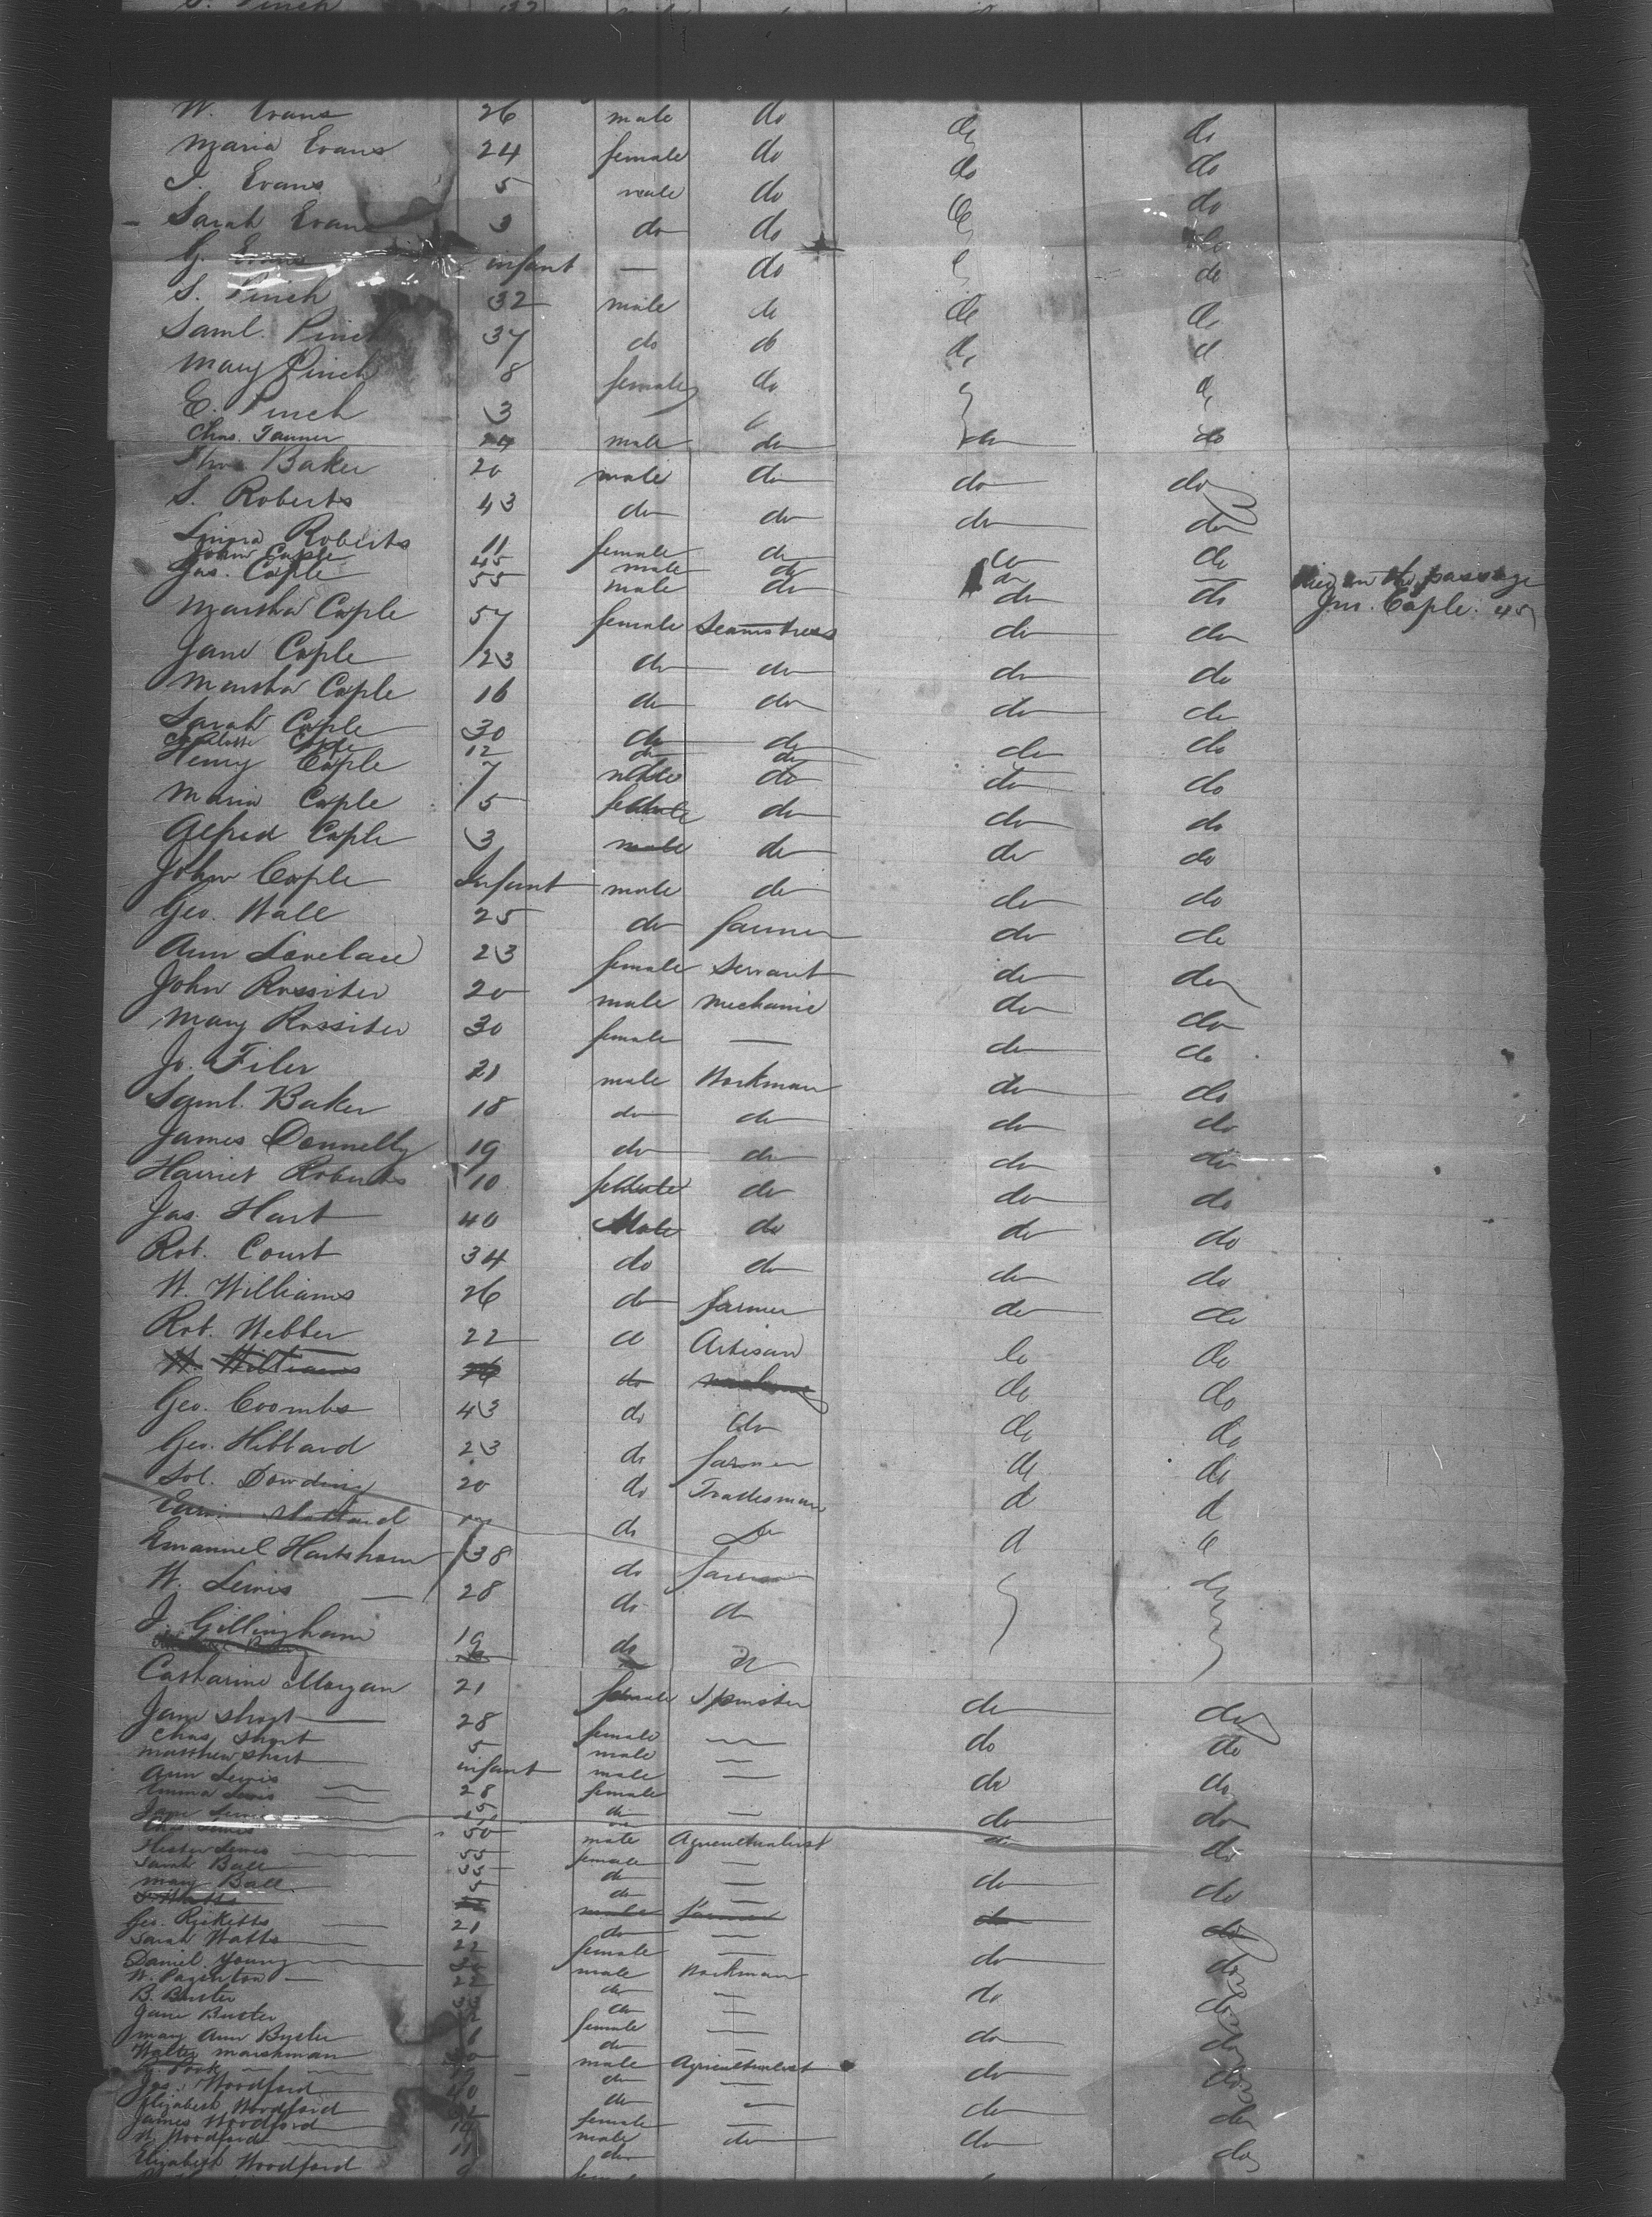 S. Pinch 32
W. Evans 26 male do do do
Maria Evans 24 female do do do
J. Evans 5 male do do do
Sarah Evans 3 do do do do
G. Evans infant — do do
S. Pinch 32 male do do do
Saml. Pinch 37 do do do d
Mary Pinch 8 female do
E. Pinch 3
Chas. Tanner 24 male do do do
Baker 20 male do do do
S. Roberts 43 do do do do
Roberts 11 female do do do
John Caple 45 male do do — died on the passage
Jas. Caple 55 male do do do Jno. Caple 45
Martha Caple 57 female Seamstress do do
Jane Caple 23 do do do do
Martha Caple 16 do do do do
Sarah Caple 30 do do do do
Charlotte Caple 12 do do
Henry Caple 7 male do do do
Maria Caple 5 female do do do
Alfred Caple 3 male do do do
John Caple Infant male do do do
Geo. Wall 25 do farmer do do
Ann Lovelace 23 female Servant do do
John Rossiter 20 male Mechanic do do
Mary Rossiter 30 female — do do
Jo. Filer 21 male Workman do do
Saml. Baker 18 do do do do
James Donnelly 19 do do do do
Harriet Roberts 10 female do do do
Jas. Hart 40 Male do do do
Rot. Court 34 do do do do
W. Williams 26 do farmer do do
Rot. Webber 22 d Artisan do do
W. Williams 26 do do do
Geo. Coombs 43 do do do do
Geo. Hibbard 23 do farmer do do
Sol. Dowding 20 do Tradesman d d
do do d
Emanuel Hartsham 38 do farmer
W. Lewis — 28 do do
J. Gillingham 19 do do
Catharine Morgan 21 female Spinster do do
Jane Short — 28 female — do do
Chas Short 5 male —
Matthew Short infant male — do do
Ann Lewis 28 female
Emma Lewis 5 do — do do
Jane Lewis do
Chas Lewis 50 male Agriculturalist do do
Hester Lewis 55 female —
Sarah Ball 55 do — do do
Mary Ball 5 do —
S. Watts male farmer do do
Geo. Ricketts 21 do —
Sarah Watts 22 female — do do
Daniel Young male Workman
W. Pagenton — do — do do
B. Buster do —
Jane Buster female —
Mary Ann Buster do — do do
Walter Marshman male Agriculturalist
Pook do — do do
Jas. Woodford 40 do —
Elizabeth Woodford female — do do
James Woodford 14 male do
W. Woodford 11 do do do
Elizabeth Woodford 9